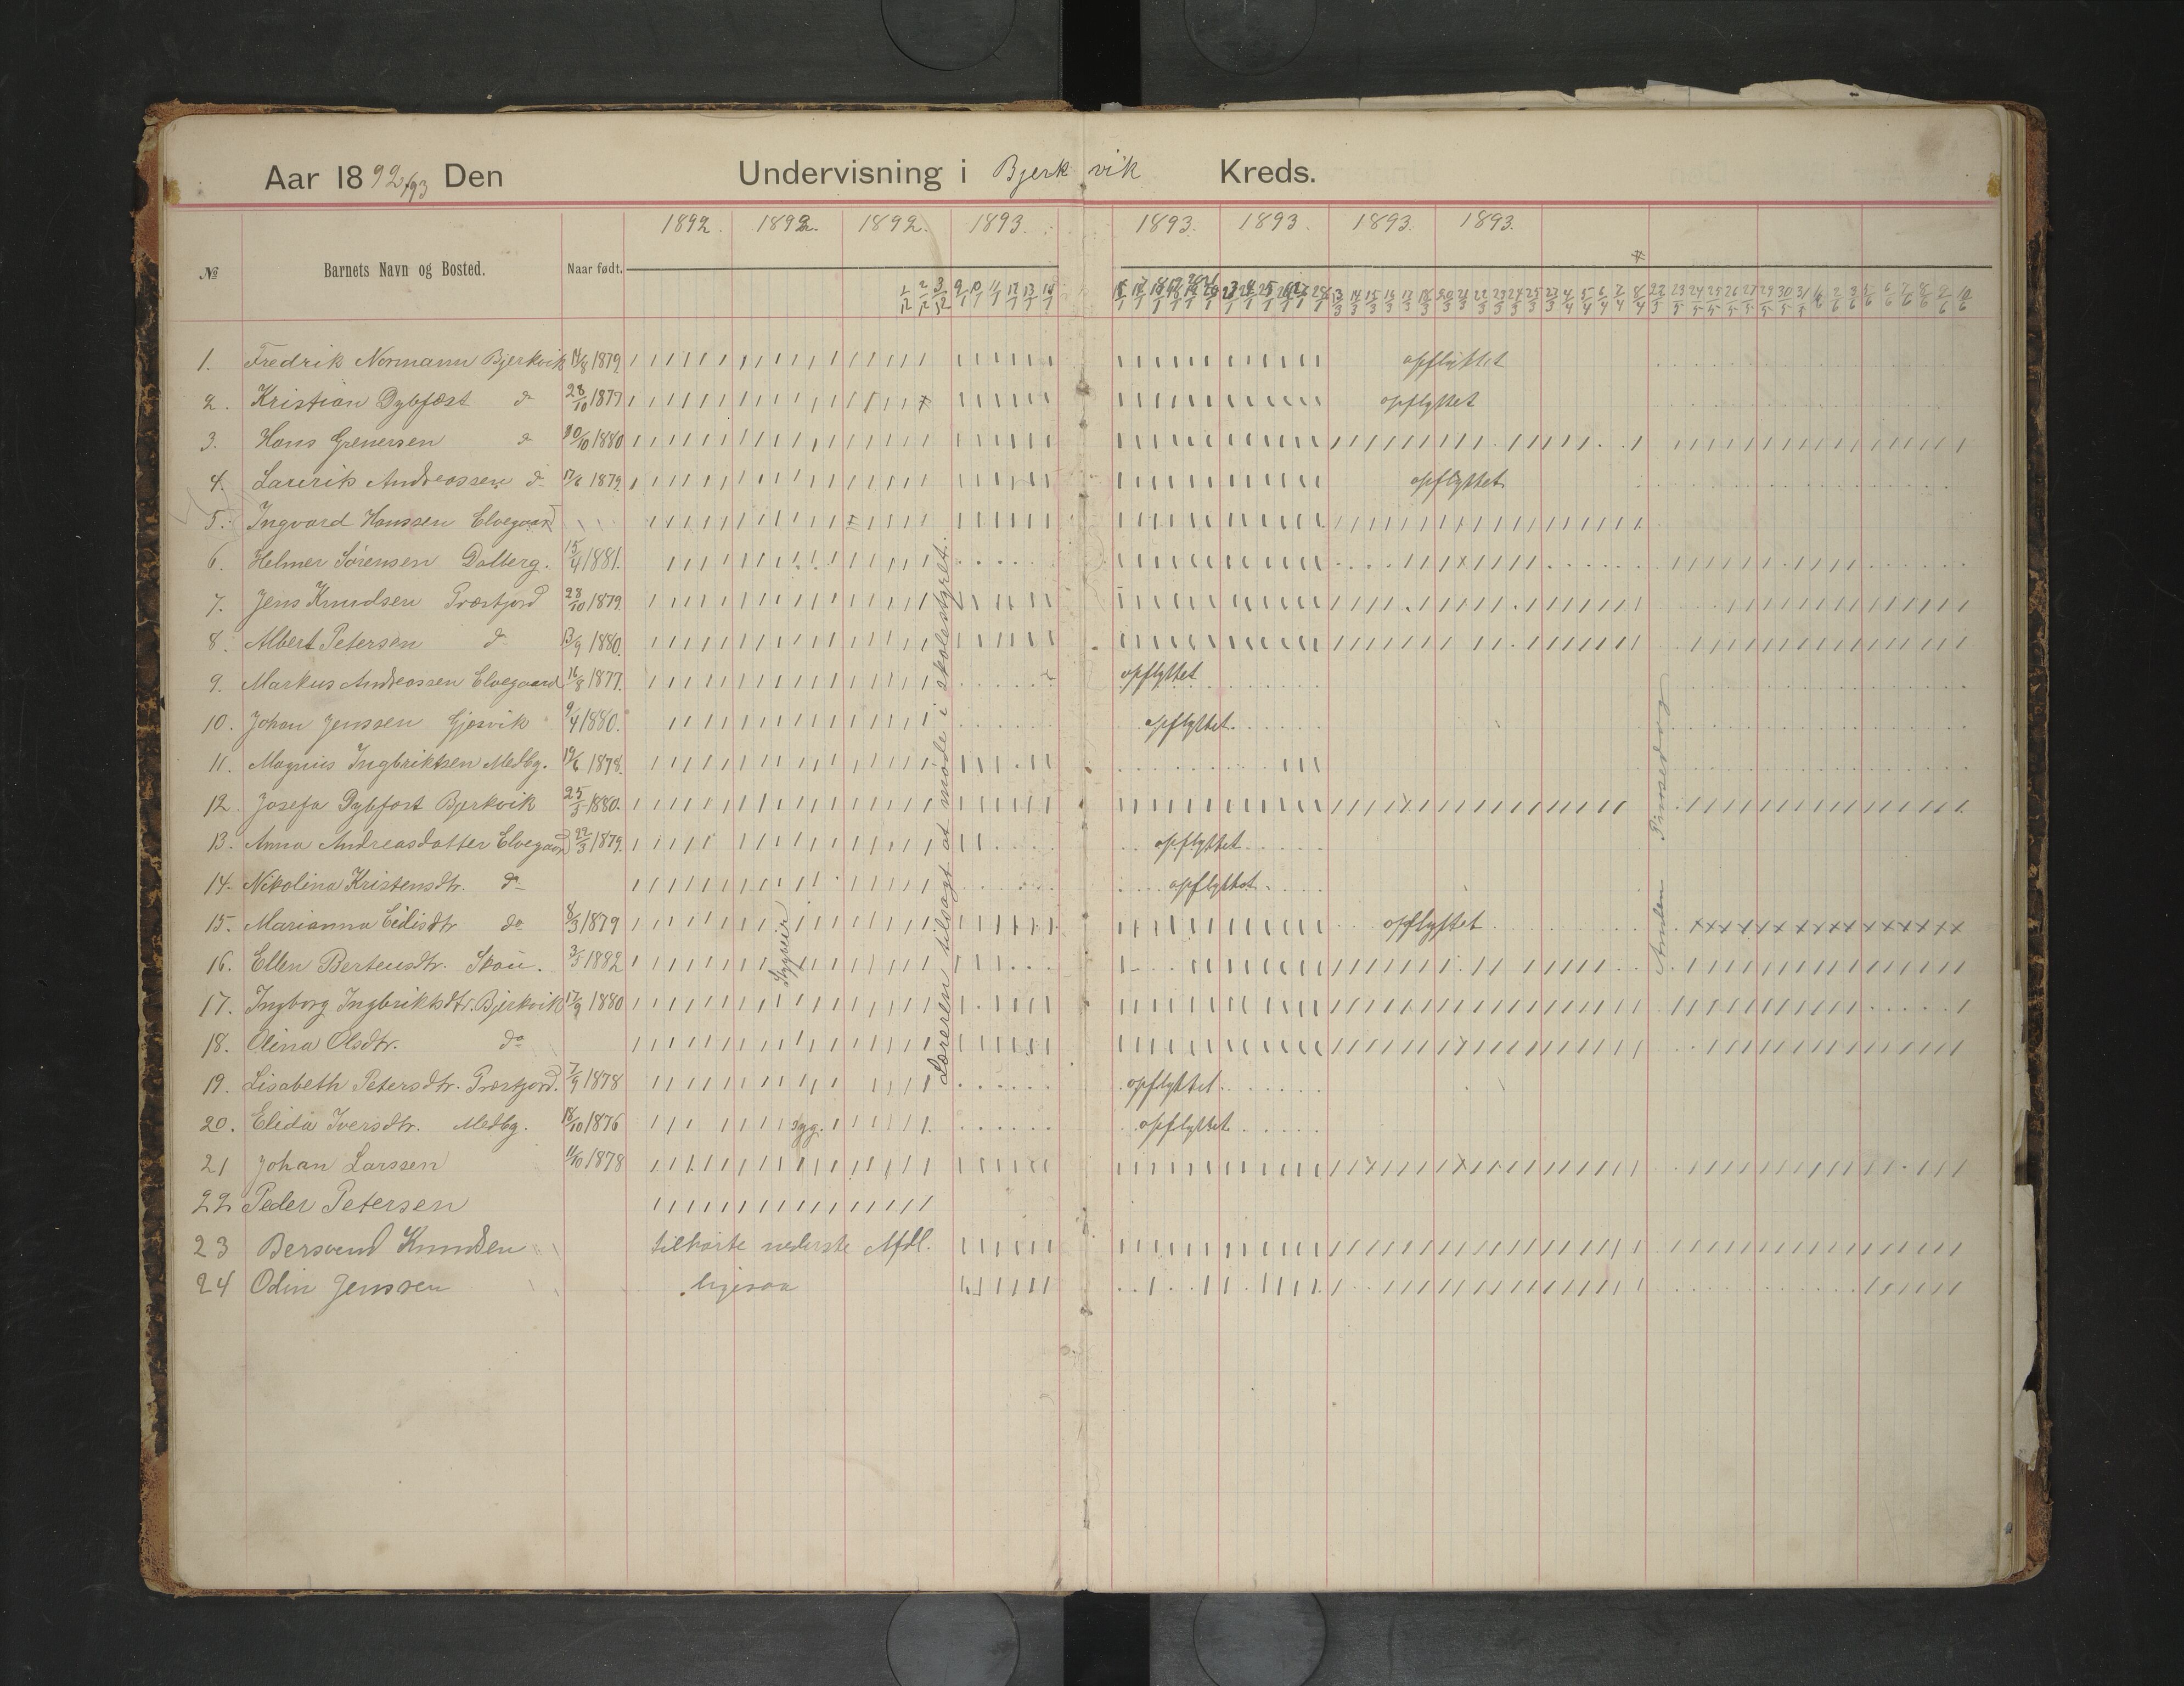 Aar 1892/93 Den Undervisning i Bjerkvik Kreds.
1892. 1892. 1892. 1893. 1893. 1893. 1893. 1893.
№ Barnets Navn og Bosted. Naar født.
1/12 2/12 3/12 9/1 10/1 11/1 12/1 13/1 14/1
1. Fredrik Normann Bjerkvik 1879. opflyttet
2. Kristian Dybfest do 28/10 1877 opflyttet
3. Hans Grenersen do 10/10 1880
4. Laurik Andreassen do 17/6 1879. opflyttet
5. Ingvard Hanssen Elvegaard
6. Helmer Sørensen Dalberg. 15/4 1881.
7. Jens Knudsen Præstjord 28/10 1879.
8. Albert Petersen do 13/9 1880.
9. Markus Andreassen Elvegaard 16/8 1877. opflyttet
10. Johan Jenssen Gjesvik 9/4 1880. opflyttet
11. Magnus Ingbriktsen Medby. 19/6 1878.
12. Josefa Dybfest Bjerkvik 25/3 1880.
13. Anna Andreasdatter Elvegaard 22/3 1879. opflyttet
14. Nikolina Kristensdtr. do opflyttet
15. Marianna Eilisdtr do 8/3 1879 opflyttet
16. Ellen Bertensdtr. Skou. 3/3 1892
17. Ingborg Ingbriktsdtr. Bjerkvik 17/9 1880
18. Olina Olsdtr. do
19. Lisabeth Petersdtr. Præstjord. 7/9 1878 opflyttet
20. Elida Iversdtr. Medby. 18/10 1876 syg. opflyttet
21 Johan Larssen 11/10 1878
22 Peder Petersen
23 Bersvend Knudsen tilhørte nederste Afdl.
24 Odin Jenssen ligesaa
Læreren tilsagt at møde i skolestyret.
Anden Pinsedag